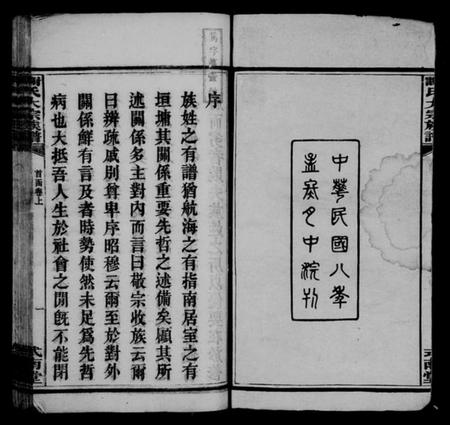 中華民國八年
孟冬月中浣刊
謝氏大宗族譜
序
族姓之有譜猶航海之有指南居室之有
垣墉其關係重要先哲之述備矣顧其所
述關係多主對內而言曰敬宗收族云爾
曰辨疏戚别尊卑序昭穆云爾至於對外
關係鮮有言及者時勢使然未足為先哲
病也夫抵吾人生於社會之間旣不能閉
謝氏大宗族譜
首函卷上
一
式南堂